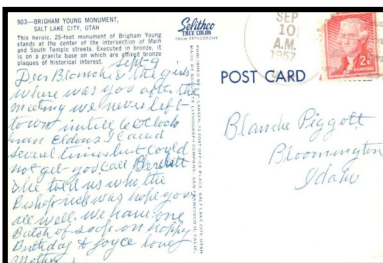 903—BRIGHAM YOUNG MONUMENT,
SALT LAKE CITY, UTAH
This heroic, 25-foot monument of Brigham Young
stands at the center of the intersection of Main
and South Temple streets. Executed in bronze, it
is on a granite base on which are affixed bronze
plaques of historical interest.
Sept-9
Dear Blanche & the girls
where was you after the
meeting we never left
town untill 6 oclock
from Eldons I called
several times but could
not get you call
she told us who the
Bishoprick was hope your
all well. we have one
Batch of soap on happy
Birthday to Joyce love
Mother
Selithco
TRUE COLOR
POST CARD
SEP
10
A.M.
1957
2¢
Blanche Piggott
Bloomington
Idaho